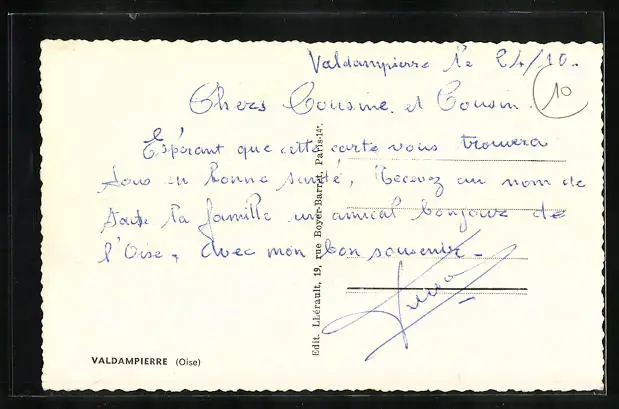 Valdampierre le 24/10.
10
Chers Cousine et Cousin.
Espérant que cette carte vous trouvera
tous en bonne santé, Recevez au nom de
toute la famille un amical bonjour de
l'Oise, avec mon bon souvenir -
Edit. LLérault, 19, rue Boyer-Barret, Paris-14e.
VALDAMPIERRE (Oise)